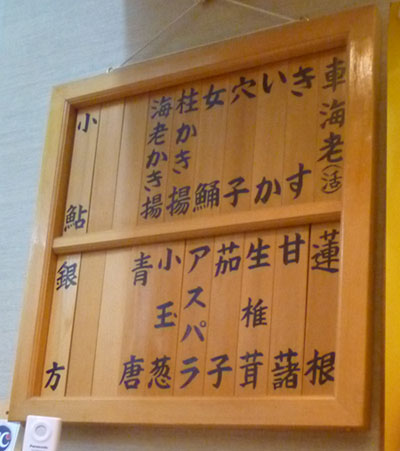 車海老(活)
きす
いか
穴子
女鯒
桂かき揚
海老かき揚
小鮎
蓮根
甘藷
生椎茸
茄子
アスパラ
小玉葱
青唐
銀方
Panasonic